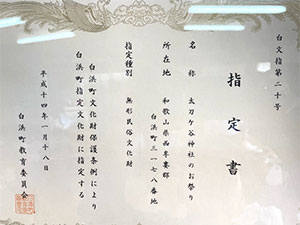 白文指第二十号
指定書
名称 太刀ケ谷神社のお祭り
所在地 和歌山県西牟婁郡
白浜町三一七八番地
指定種別 無形民俗文化財
白浜町文化財保護条例により
白浜町指定文化財に指定する
平成十四年一月十八日
白浜町教育委員会